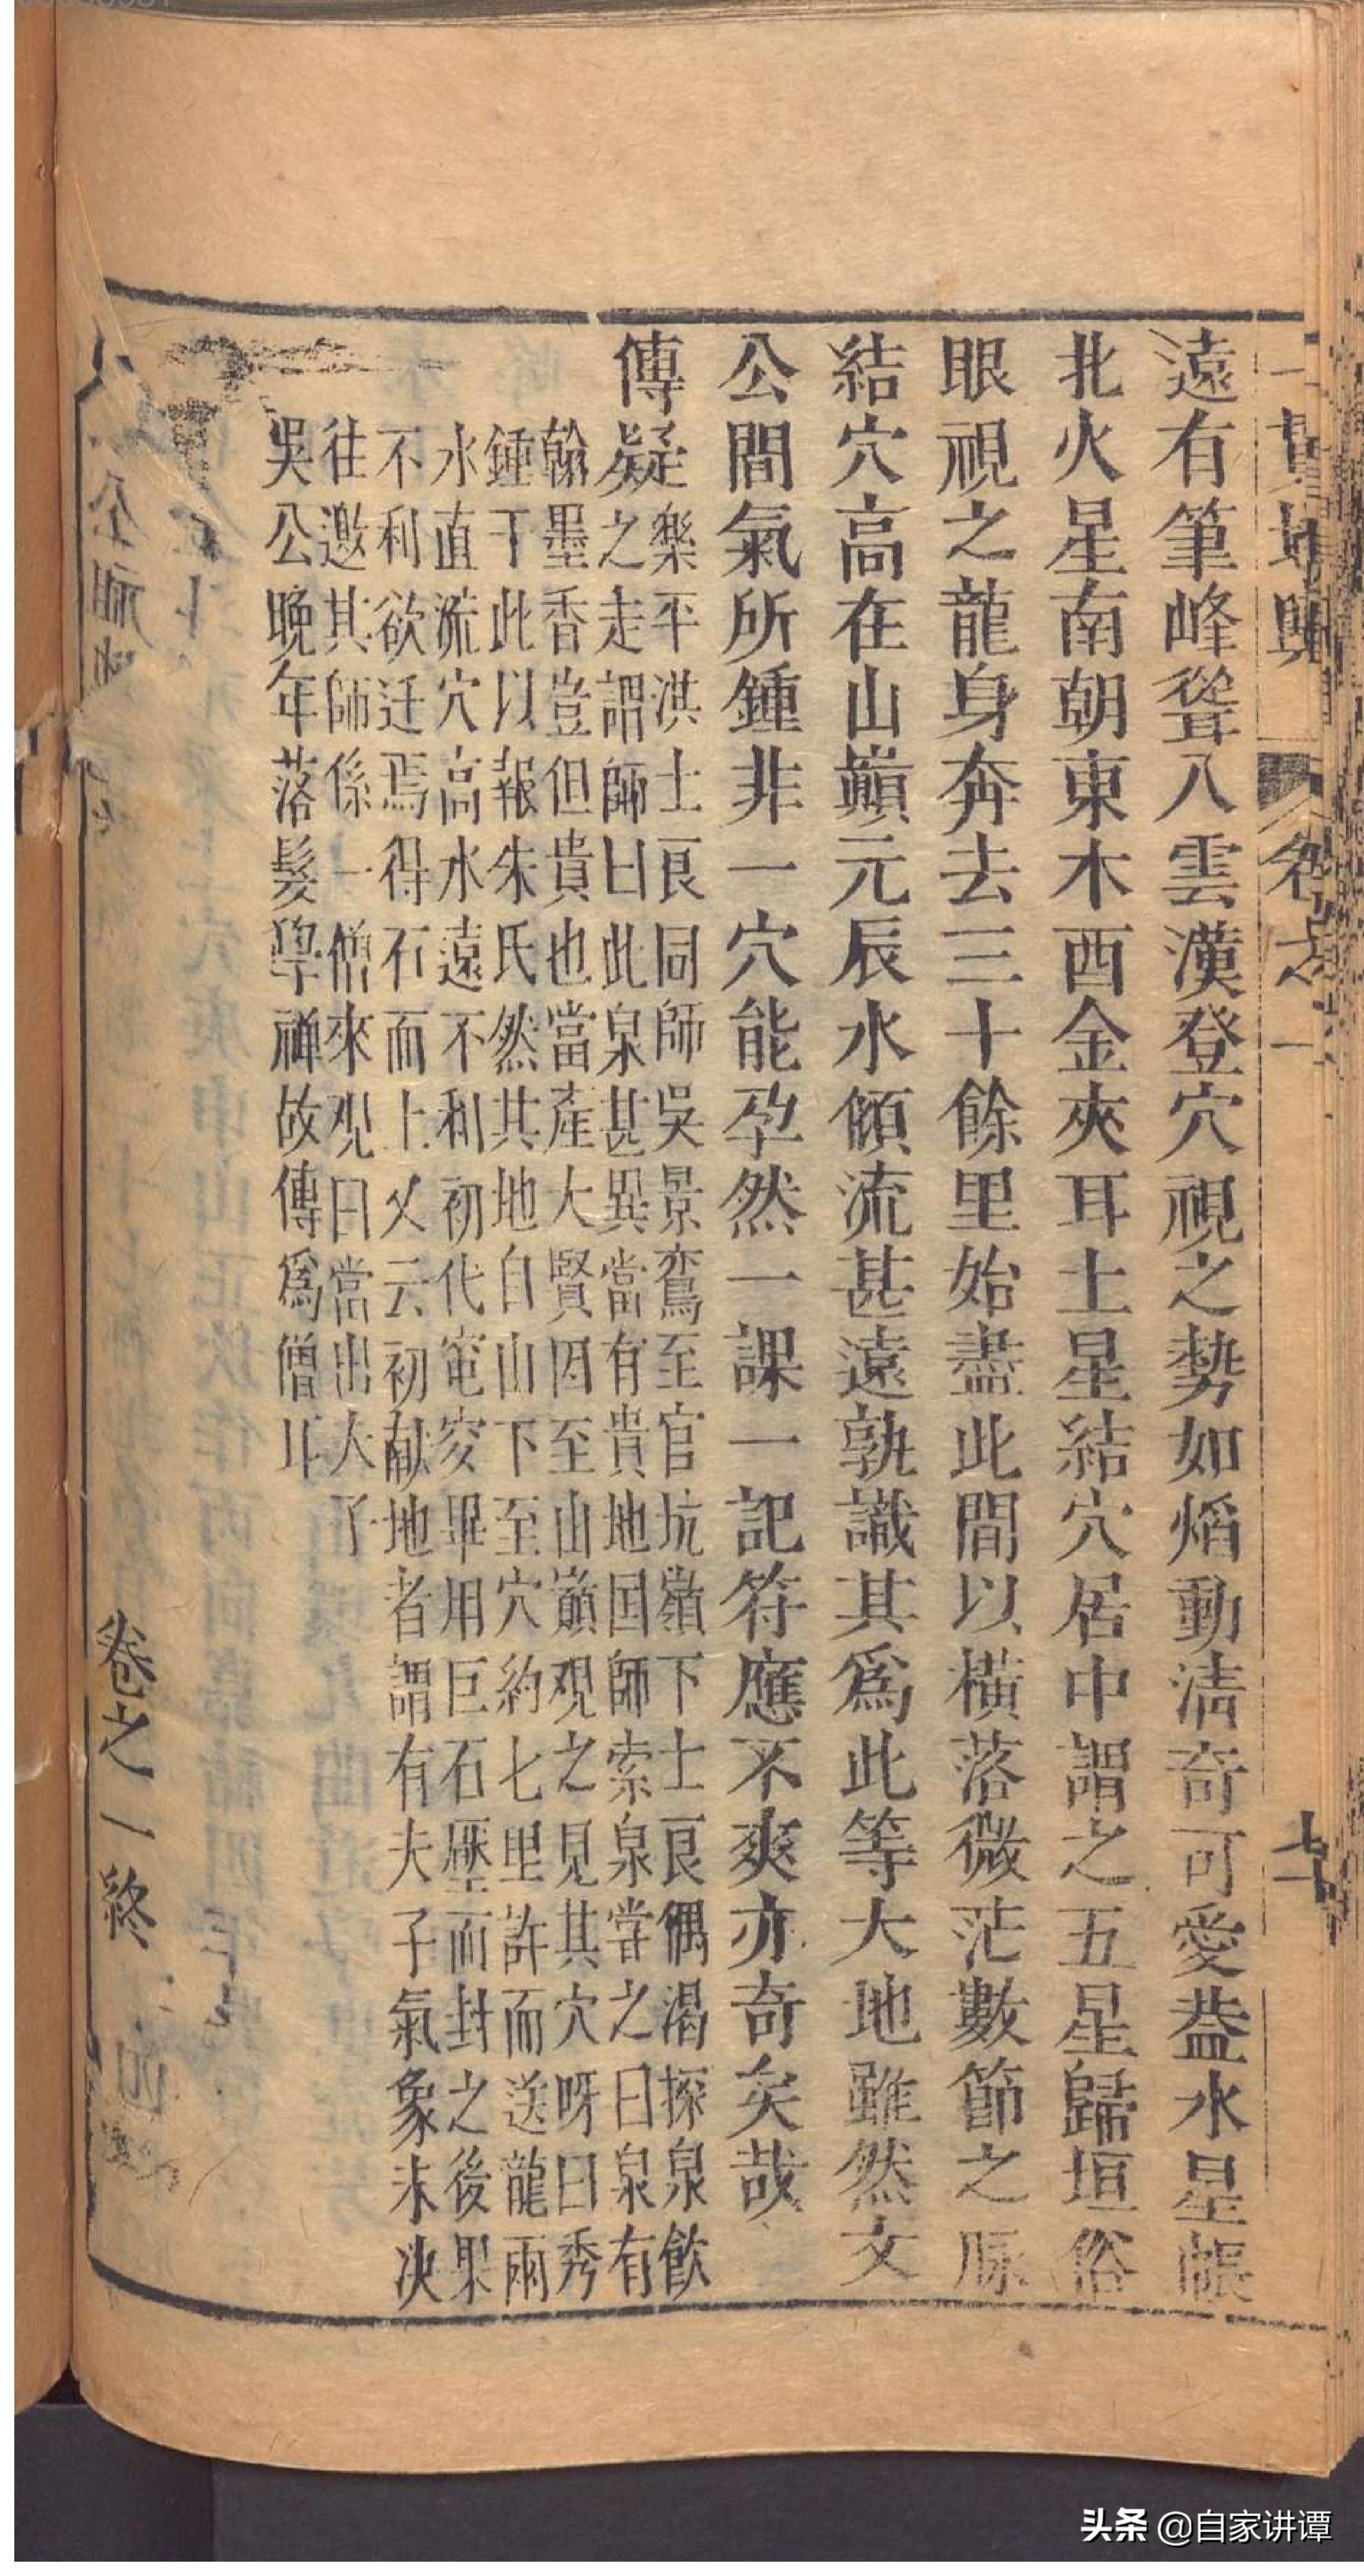 遠有筆峰聳入雲漢登穴視之勢如焰動清奇可愛葢水星帳
北火星南朝東木西金夾耳土星結穴居中謂之五星歸垣俗
眼視之龍身奔去三十餘里始盡此間以橫落微茫數節之脉
結穴高在山巔元辰水傾流甚遠孰識其爲此等大地雖然文
公間氣所鍾非一穴能孕然一課一記符應不爽亦奇矣哉
傳疑樂平洪士良同師吳景鸞至官坑嶺下士良偶渴探泉飲
之走謂師曰此泉甚異當有貴地国師索泉嘗之曰泉有
翰墨香豈但貴也當產大賢因至山巔覌之見其穴呀曰秀
鍾于此以報朱氏然其地自山下至穴約七里許而送龍兩
水直流穴高水遠不利初代窀穸畢用巨石壓而封之後果
不利欲迁焉得石而上乂云初献地者謂有夫子氣象未决
往邀其師係一僧來覌曰當出大了
吳公晚年落髮學禅故傳爲僧耳
卷之一終
卷之一
頭条 @自家讲谭